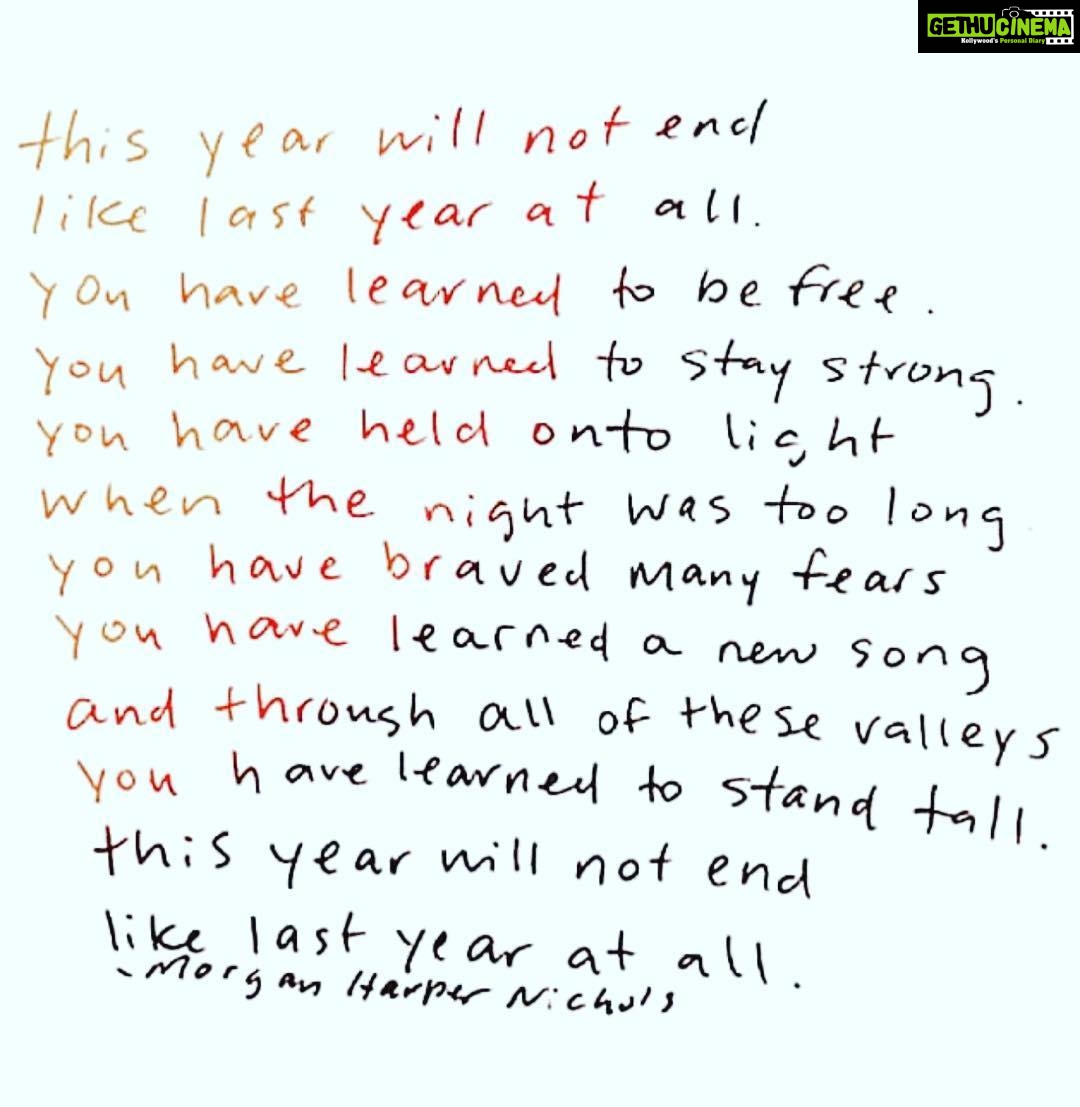 GETHU CINEMA
Kollywood's Personal Diary
this year will not end
like last year at all.
you have learned to be free.
you have learned to stay strong.
you have held onto light
when the night was too long
you have braved many fears
you have learned a new song
and through all of these valleys
you have learned to stand tall.
this year will not end
like last year at all.
- Morgan Harper Nichols